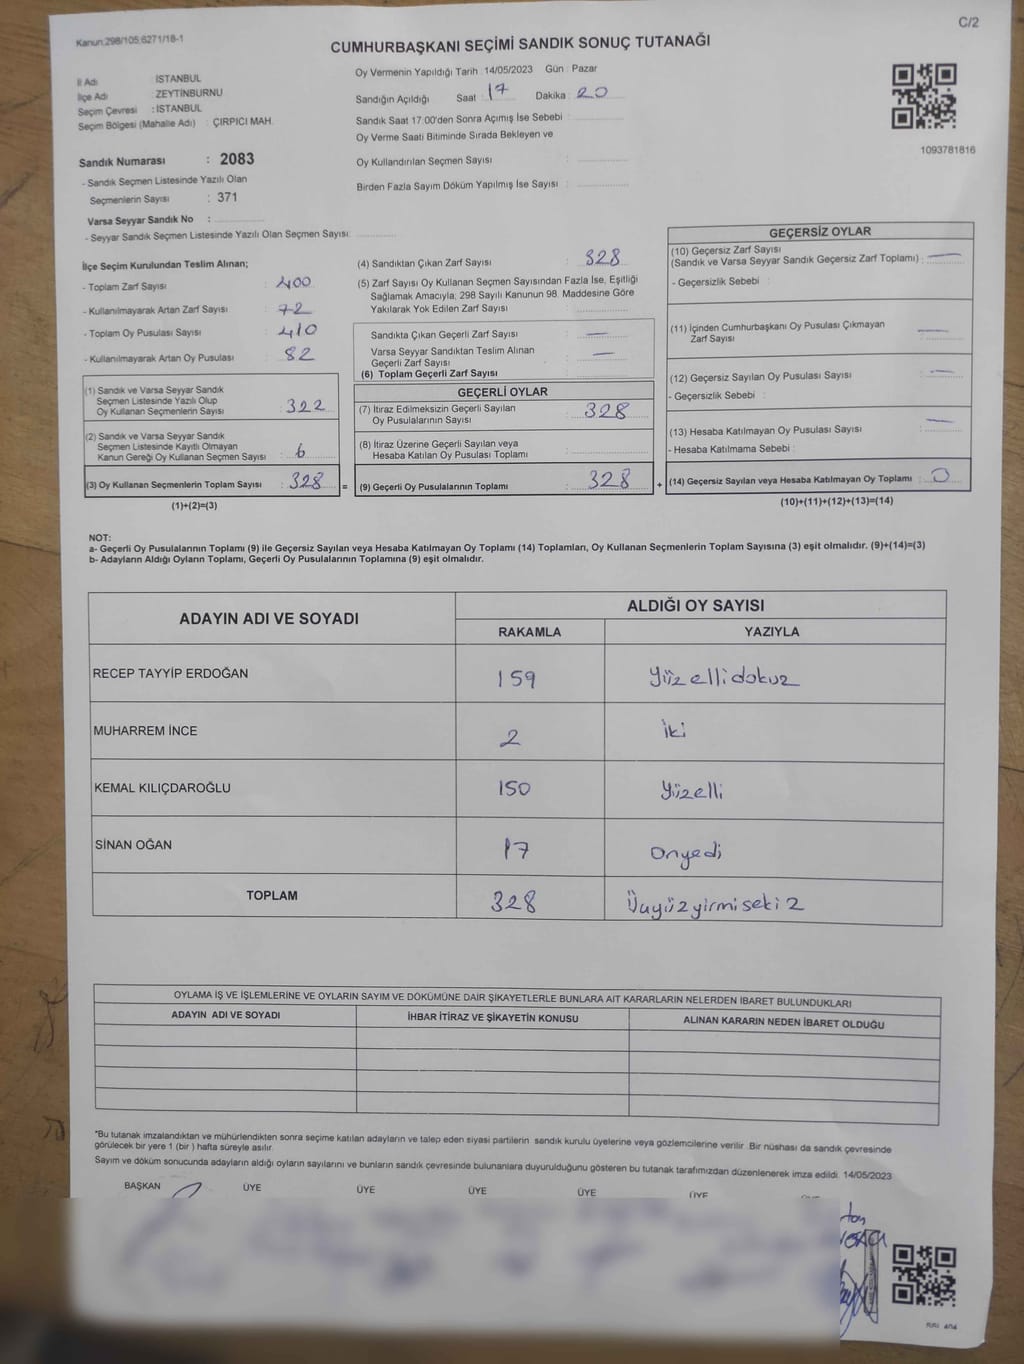 Kanun.298/105,6271/18-1
C/2
CUMHURBAŞKANI SEÇİMİ SANDIK SONUÇ TUTANAĞI
İl Adı : İSTANBUL
İlçe Adı : ZEYTİNBURNU
Seçim Çevresi : İSTANBUL
Seçim Bölgesi (Mahalle Adı) : ÇIRPICI MAH.
Sandık Numarası : 2083
- Sandık Seçmen Listesinde Yazılı Olan
Seçmenlerin Sayısı : 371
Varsa Seyyar Sandık No :
- Seyyar Sandık Seçmen Listesinde Yazılı Olan Seçmen Sayısı:
Oy Vermenin Yapıldığı Tarih : 14/05/2023 Gün : Pazar
Sandığın Açıldığı Saat : 17 Dakika : 20
Sandık Saat 17:00'den Sonra Açımış İse Sebebi :
Oy Verme Saati Bitiminde Sırada Bekleyen ve
Oy Kullandırılan Seçmen Sayısı :
Birden Fazla Sayım Döküm Yapılmış İse Sayısı :
1093781816
İlçe Seçim Kurulundan Teslim Alınan;
- Toplam Zarf Sayısı : 400
- Kullanılmayarak Artan Zarf Sayısı : 72
- Toplam Oy Pusulası Sayısı : 410
- Kullanılmayarak Artan Oy Pusulası : 82
(1) Sandık ve Varsa Seyyar Sandık
Seçmen Listesinde Yazılı Olup
Oy Kullanan Seçmenlerin Sayısı : 322
(2) Sandık ve Varsa Seyyar Sandık
Seçmen Listesinde Kayıtlı Olmayan
Kanun Gereği Oy Kullanan Seçmen Sayısı : 6
(3) Oy Kullanan Seçmenlerin Toplam Sayısı : 328 =
(1)+(2)=(3)
(4) Sandıktan Çıkan Zarf Sayısı : 328
(5) Zarf Sayısı Oy Kullanan Seçmen Sayısından Fazla İse, Eşitliği
Sağlamak Amacıyla; 298 Sayılı Kanunun 98. Maddesine Göre
Yakılarak Yok Edilen Zarf Sayısı :
Sandıkta Çıkan Geçerli Zarf Sayısı : —
Varsa Seyyar Sandıktan Teslim Alınan
Geçerli Zarf Sayısı : —
(6) Toplam Geçerli Zarf Sayısı :
GEÇERLİ OYLAR
(7) İtiraz Edilmeksizin Geçerli Sayılan
Oy Pusulalarının Sayısı : 328
(8) İtiraz Üzerine Geçerli Sayılan veya
Hesaba Katılan Oy Pusulası Toplamı :
(9) Geçerli Oy Pusulalarının Toplamı : 328 +
GEÇERSİZ OYLAR
(10) Geçersiz Zarf Sayısı
(Sandık ve Varsa Seyyar Sandık Geçersiz Zarf Toplamı) : —
- Geçersizlik Sebebi :
(11) İçinden Cumhurbaşkanı Oy Pusulası Çıkmayan
Zarf Sayısı : —
(12) Geçersiz Sayılan Oy Pusulası Sayısı : —
- Geçersizlik Sebebi :
(13) Hesaba Katılmayan Oy Pusulası Sayısı : —
- Hesaba Katılmama Sebebi :
(14) Geçersiz Sayılan veya Hesaba Katılmayan Oy Toplamı : 0
(10)+(11)+(12)+(13)=(14)
NOT:
a- Geçerli Oy Pusulalarının Toplamı (9) ile Geçersiz Sayılan veya Hesaba Katılmayan Oy Toplamı (14) Toplamları, Oy Kullanan Seçmenlerin Toplam Sayısına (3) eşit olmalıdır. (9)+(14)=(3)
b- Adayların Aldığı Oyların Toplamı, Geçerli Oy Pusulalarının Toplamına (9) eşit olmalıdır.
ADAYIN ADI VE SOYADI
ALDIĞI OY SAYISI
RAKAMLA YAZIYLA
RECEP TAYYİP ERDOĞAN 159 Yüzellidokuz
MUHARREM İNCE 2 İki
KEMAL KILIÇDAROĞLU 150 Yüzelli
SİNAN OĞAN 17 Onyedi
TOPLAM 328 Üçyüzyirmisekiz
OYLAMA İŞ VE İŞLEMLERİNE VE OYLARIN SAYIM VE DÖKÜMÜNE DAİR ŞİKAYETLERLE BUNLARA AİT KARARLARIN NELERDEN İBARET BULUNDUKLARI
ADAYIN ADI VE SOYADI İHBAR İTİRAZ VE ŞİKAYETİN KONUSU ALINAN KARARIN NEDEN İBARET OLDUĞU
*Bu tutanak imzalandıktan ve mühürlendikten sonra seçime katılan adayların ve talep eden siyasi partilerin sandık kurulu üyelerine veya gözlemcilerine verilir. Bir nüshası da sandık çevresinde
görülecek bir yere 1 (bir) hafta süreyle asılır.
Sayım ve döküm sonucunda adayların aldığı oyların sayılarını ve bunların sandık çevresinde bulunanlara duyurulduğunu gösteren bu tutanak tarafımızdan düzenlenerek imza edildi. 14/05/2023
BAŞKAN ÜYE ÜYE ÜYE ÜYE ÜYE